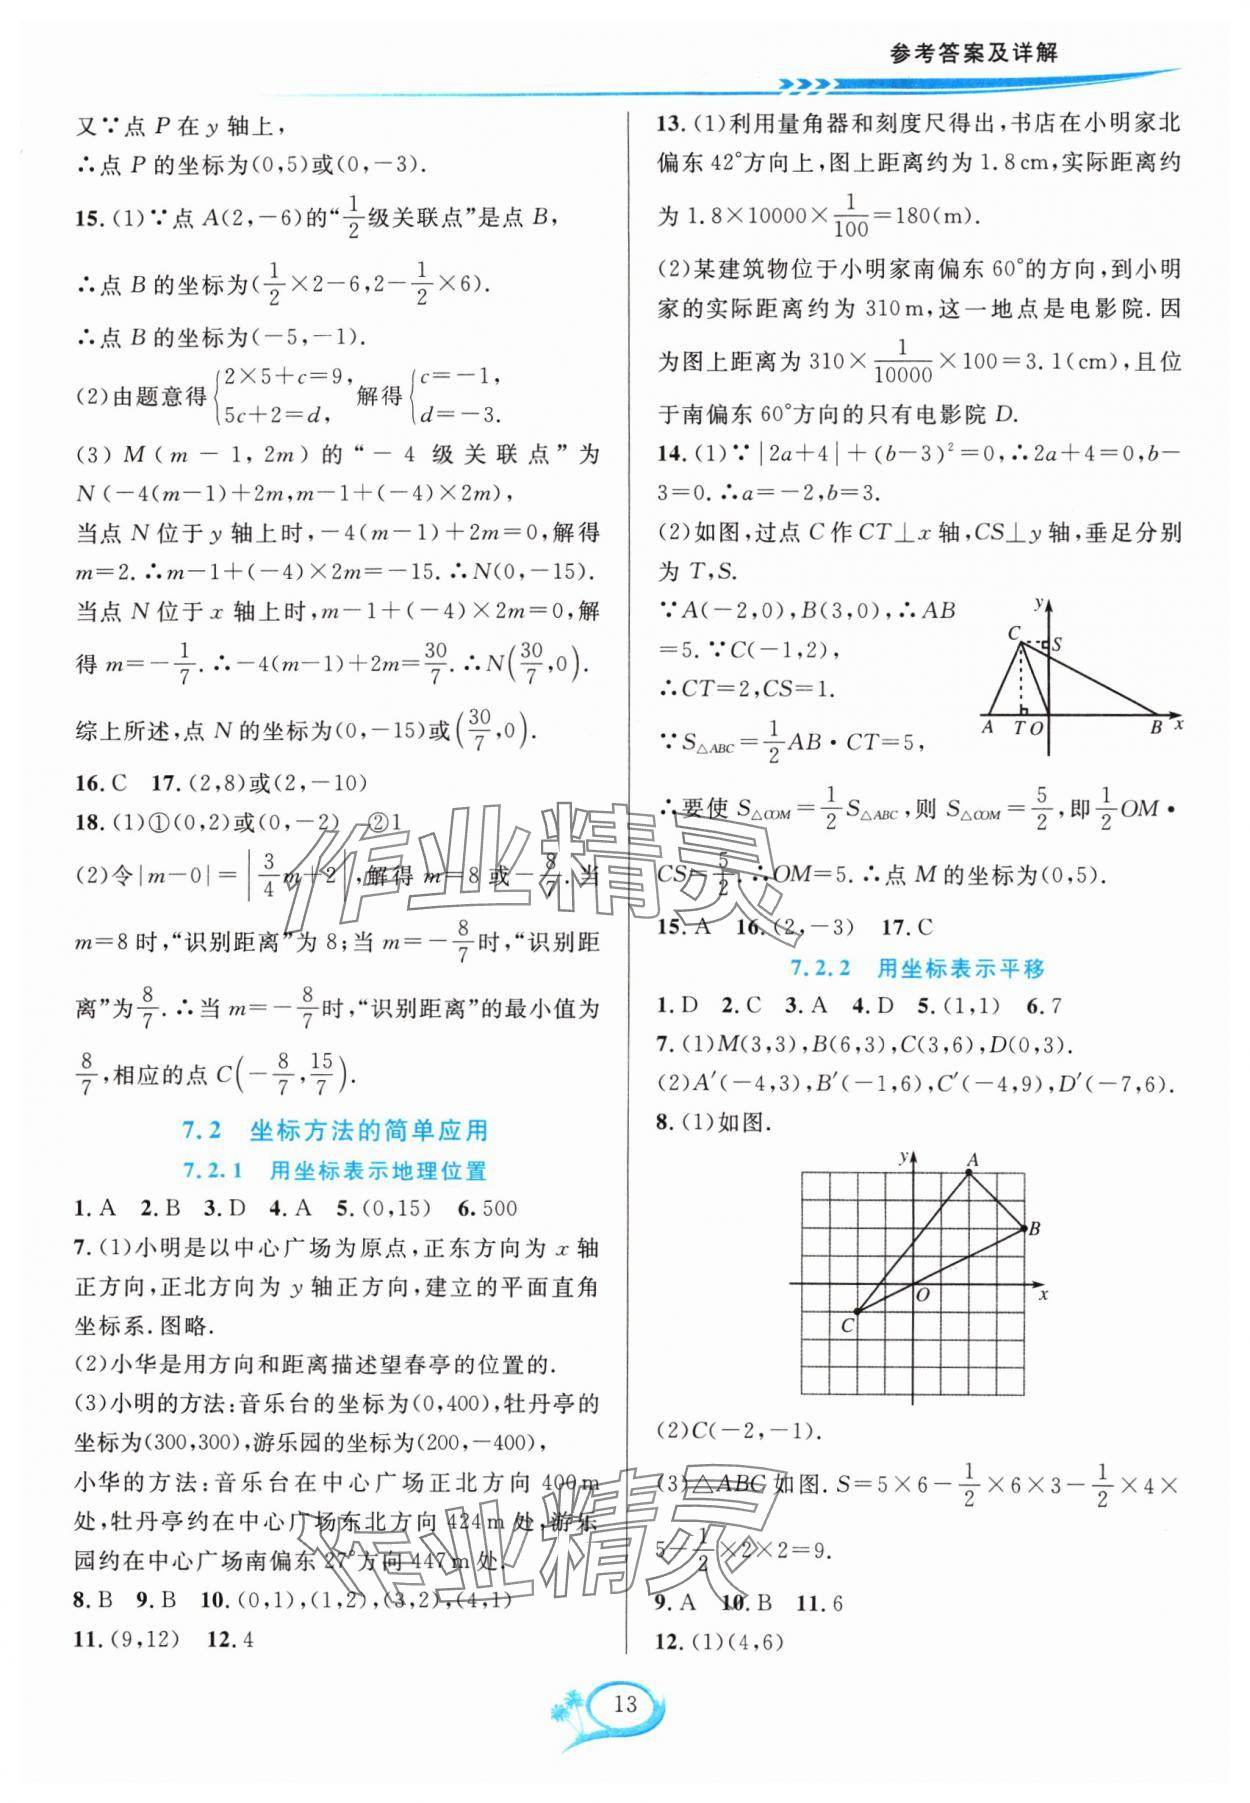 参考答案及详解
又∵点 P 在 y 轴上，
∴点 P 的坐标为(0,5)或(0,-3).
15.(1)∵点 A(2,-6)的“1/2级关联点”是点 B，
∴点 B 的坐标为(1/2×2-6,2-1/2×6).
∴点 B 的坐标为(-5,-1).
(2)由题意得{2×5+c=9, 5c+2=d, 解得{c=-1, d=-3.
(3) M(m-1,2m)的“-4级关联点”为
N(-4(m-1)+2m,m-1+(-4)×2m),
当点 N 位于 y 轴上时,-4(m-1)+2m=0,解得
m=2.∴m-1+(-4)×2m=-15.∴N(0,-15).
当点 N 位于 x 轴上时,m-1+(-4)×2m=0,解
得 m=-1/7.∴-4(m-1)+2m=30/7.∴N(30/7,0).
综上所述,点 N 的坐标为(0,-15)或(30/7,0).
16.C 17.(2,8)或(2,-10)
18.(1)①(0,2)或(0,-2) ②1
(2)令|m-0|=|3/4m+2|,解得 m=8 或-8/7.当
m=8 时,“识别距离”为 8;当 m=-8/7时,“识别距
离”为8/7.∴当 m=-8/7时,“识别距离”的最小值为
8/7,相应的点 C(-8/7,15/7).
7.2 坐标方法的简单应用
7.2.1 用坐标表示地理位置
1.A 2.B 3.D 4.A 5.(0,15) 6.500
7.(1)小明是以中心广场为原点,正东方向为 x 轴
正方向,正北方向为 y 轴正方向,建立的平面直角
坐标系.图略.
(2)小华是用方向和距离描述望春亭的位置的.
(3)小明的方法:音乐台的坐标为(0,400),牡丹亭的
坐标为(300,300),游乐园的坐标为(200,-400),
小华的方法:音乐台在中心广场正北方向 400 m
处,牡丹亭约在中心广场东北方向 424 m 处,游乐
园约在中心广场南偏东 27°方向 447 m 处.
8.B 9.B 10.(0,1),(1,2),(3,2),(4,1)
11.(9,12) 12.4
13.(1)利用量角器和刻度尺得出,书店在小明家北
偏东 42°方向上,图上距离约为 1.8 cm,实际距离约
为 1.8×10000×1/100=180(m).
(2)某建筑物位于小明家南偏东 60°的方向,到小明
家的实际距离约为 310 m,这一地点是电影院.因
为图上距离为 310×1/10000×100=3.1(cm),且位
于南偏东 60°方向的只有电影院 D.
14.(1)∵|2a+4|+(b-3)²=0,∴2a+4=0,b-
3=0.∴a=-2,b=3.
(2)如图,过点 C 作 CT⊥x 轴,CS⊥y 轴,垂足分别
为 T,S.
∵A(-2,0),B(3,0),∴AB
=5.∵C(-1,2),
∴CT=2,CS=1.
∵S△ABC=1/2AB·CT=5,
y
C
S
A T O B x
∴要使 S△COM=1/2S△ABC,则 S△COM=5/2,即1/2OM·
CS=5/2,∴OM=5.∴点 M 的坐标为(0,5).
15.A 16.(2,-3) 17.C
7.2.2 用坐标表示平移
1.D 2.C 3.A 4.D 5.(1,1) 6.7
7.(1)M(3,3),B(6,3),C(3,6),D(0,3).
(2)A′(-4,3),B′(-1,6),C′(-4,9),D′(-7,6).
8.(1)如图.
y
A
B
O
x
C
(2)C(-2,-1).
(3)△ABC 如图.S=5×6-1/2×6×3-1/2×4×
5-1/2×2×2=9.
9.A 10.B 11.6
12.(1)(4,6)
13
作业精灵
作业精灵